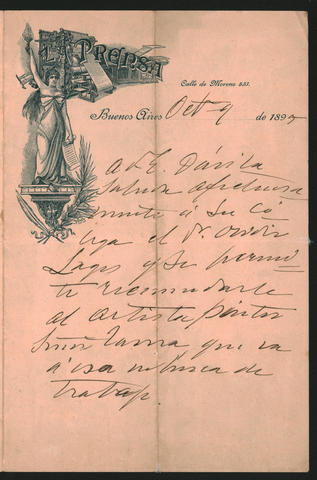 LA PRENSA
Calle de Moreno 551.
Buenos Aires Oct 9 de 189
A D. E. Dávila
saluda afectuosa
mente á su Co
lega el Dr. Ovidio
Lagos y se permi
te recomendarle
al artista pintor
Señor que va
á esa en busca de
trabajo.